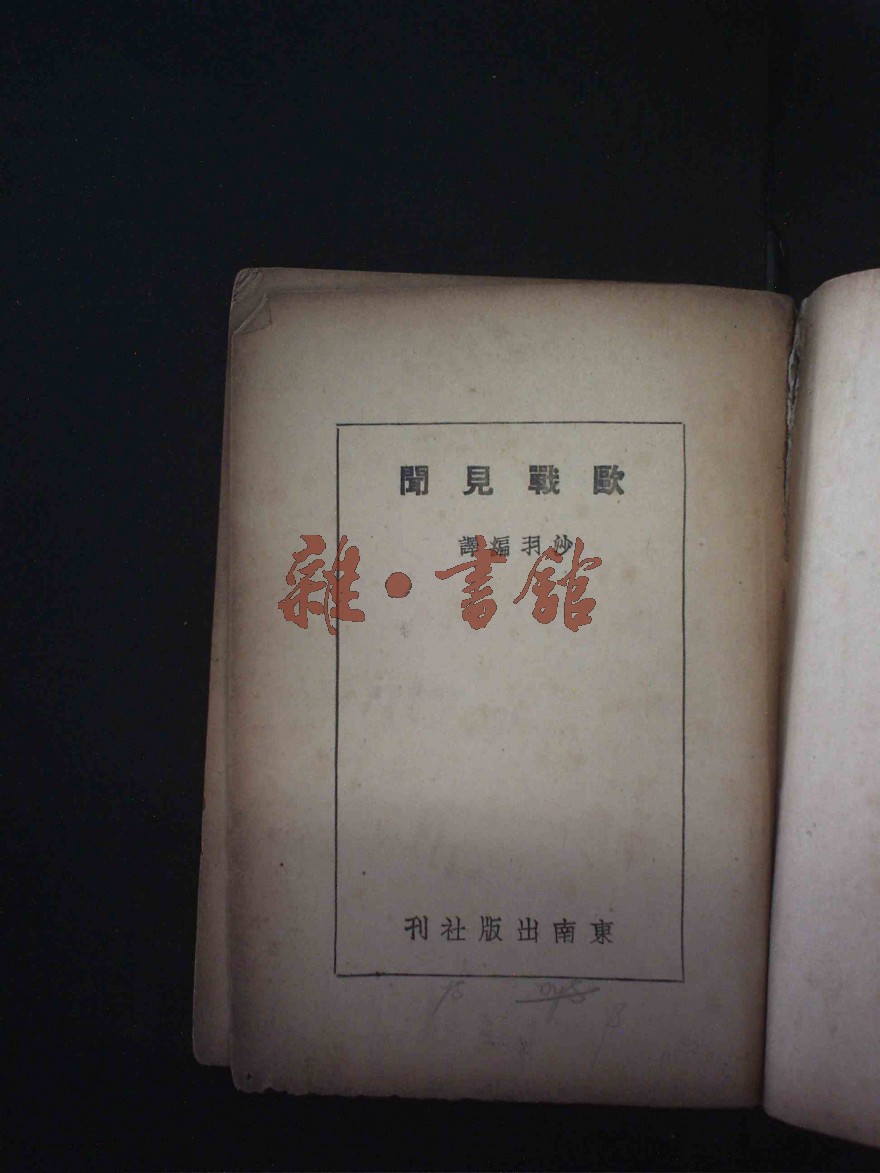 歐戰見聞
沙羽編譯
雜·書館
東南出版社刊